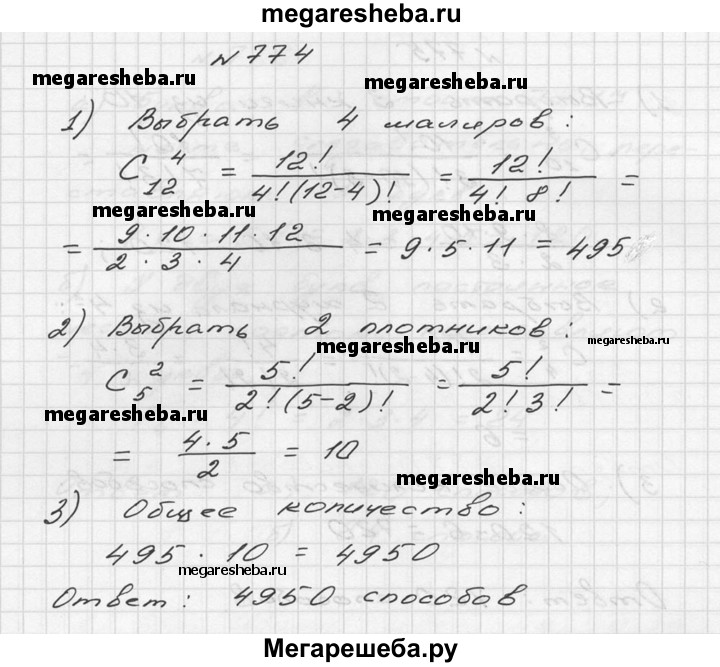 megaresheba.ru
№ 774
megaresheba.ru megaresheba.ru
1) Выбрать 4 маляров:
C₁₂⁴ = 12! / 4!(12-4)! = 12! / 4! 8! =
megaresheba.ru megaresheba.ru
= 9·10·11·12 / 2·3·4 = 9·5·11 = 495
2) Выбрать 2 плотников:
megaresheba.ru megaresheba.ru
C₅² = 5! / 2!(5-2)! = 5! / 2! 3! =
megaresheba.ru
= 4·5 / 2 = 10
megaresheba.ru
3) Общее количество:
495 · 10 = 4950
megaresheba.ru
Ответ: 4950 способов
Мегарешеба.ру